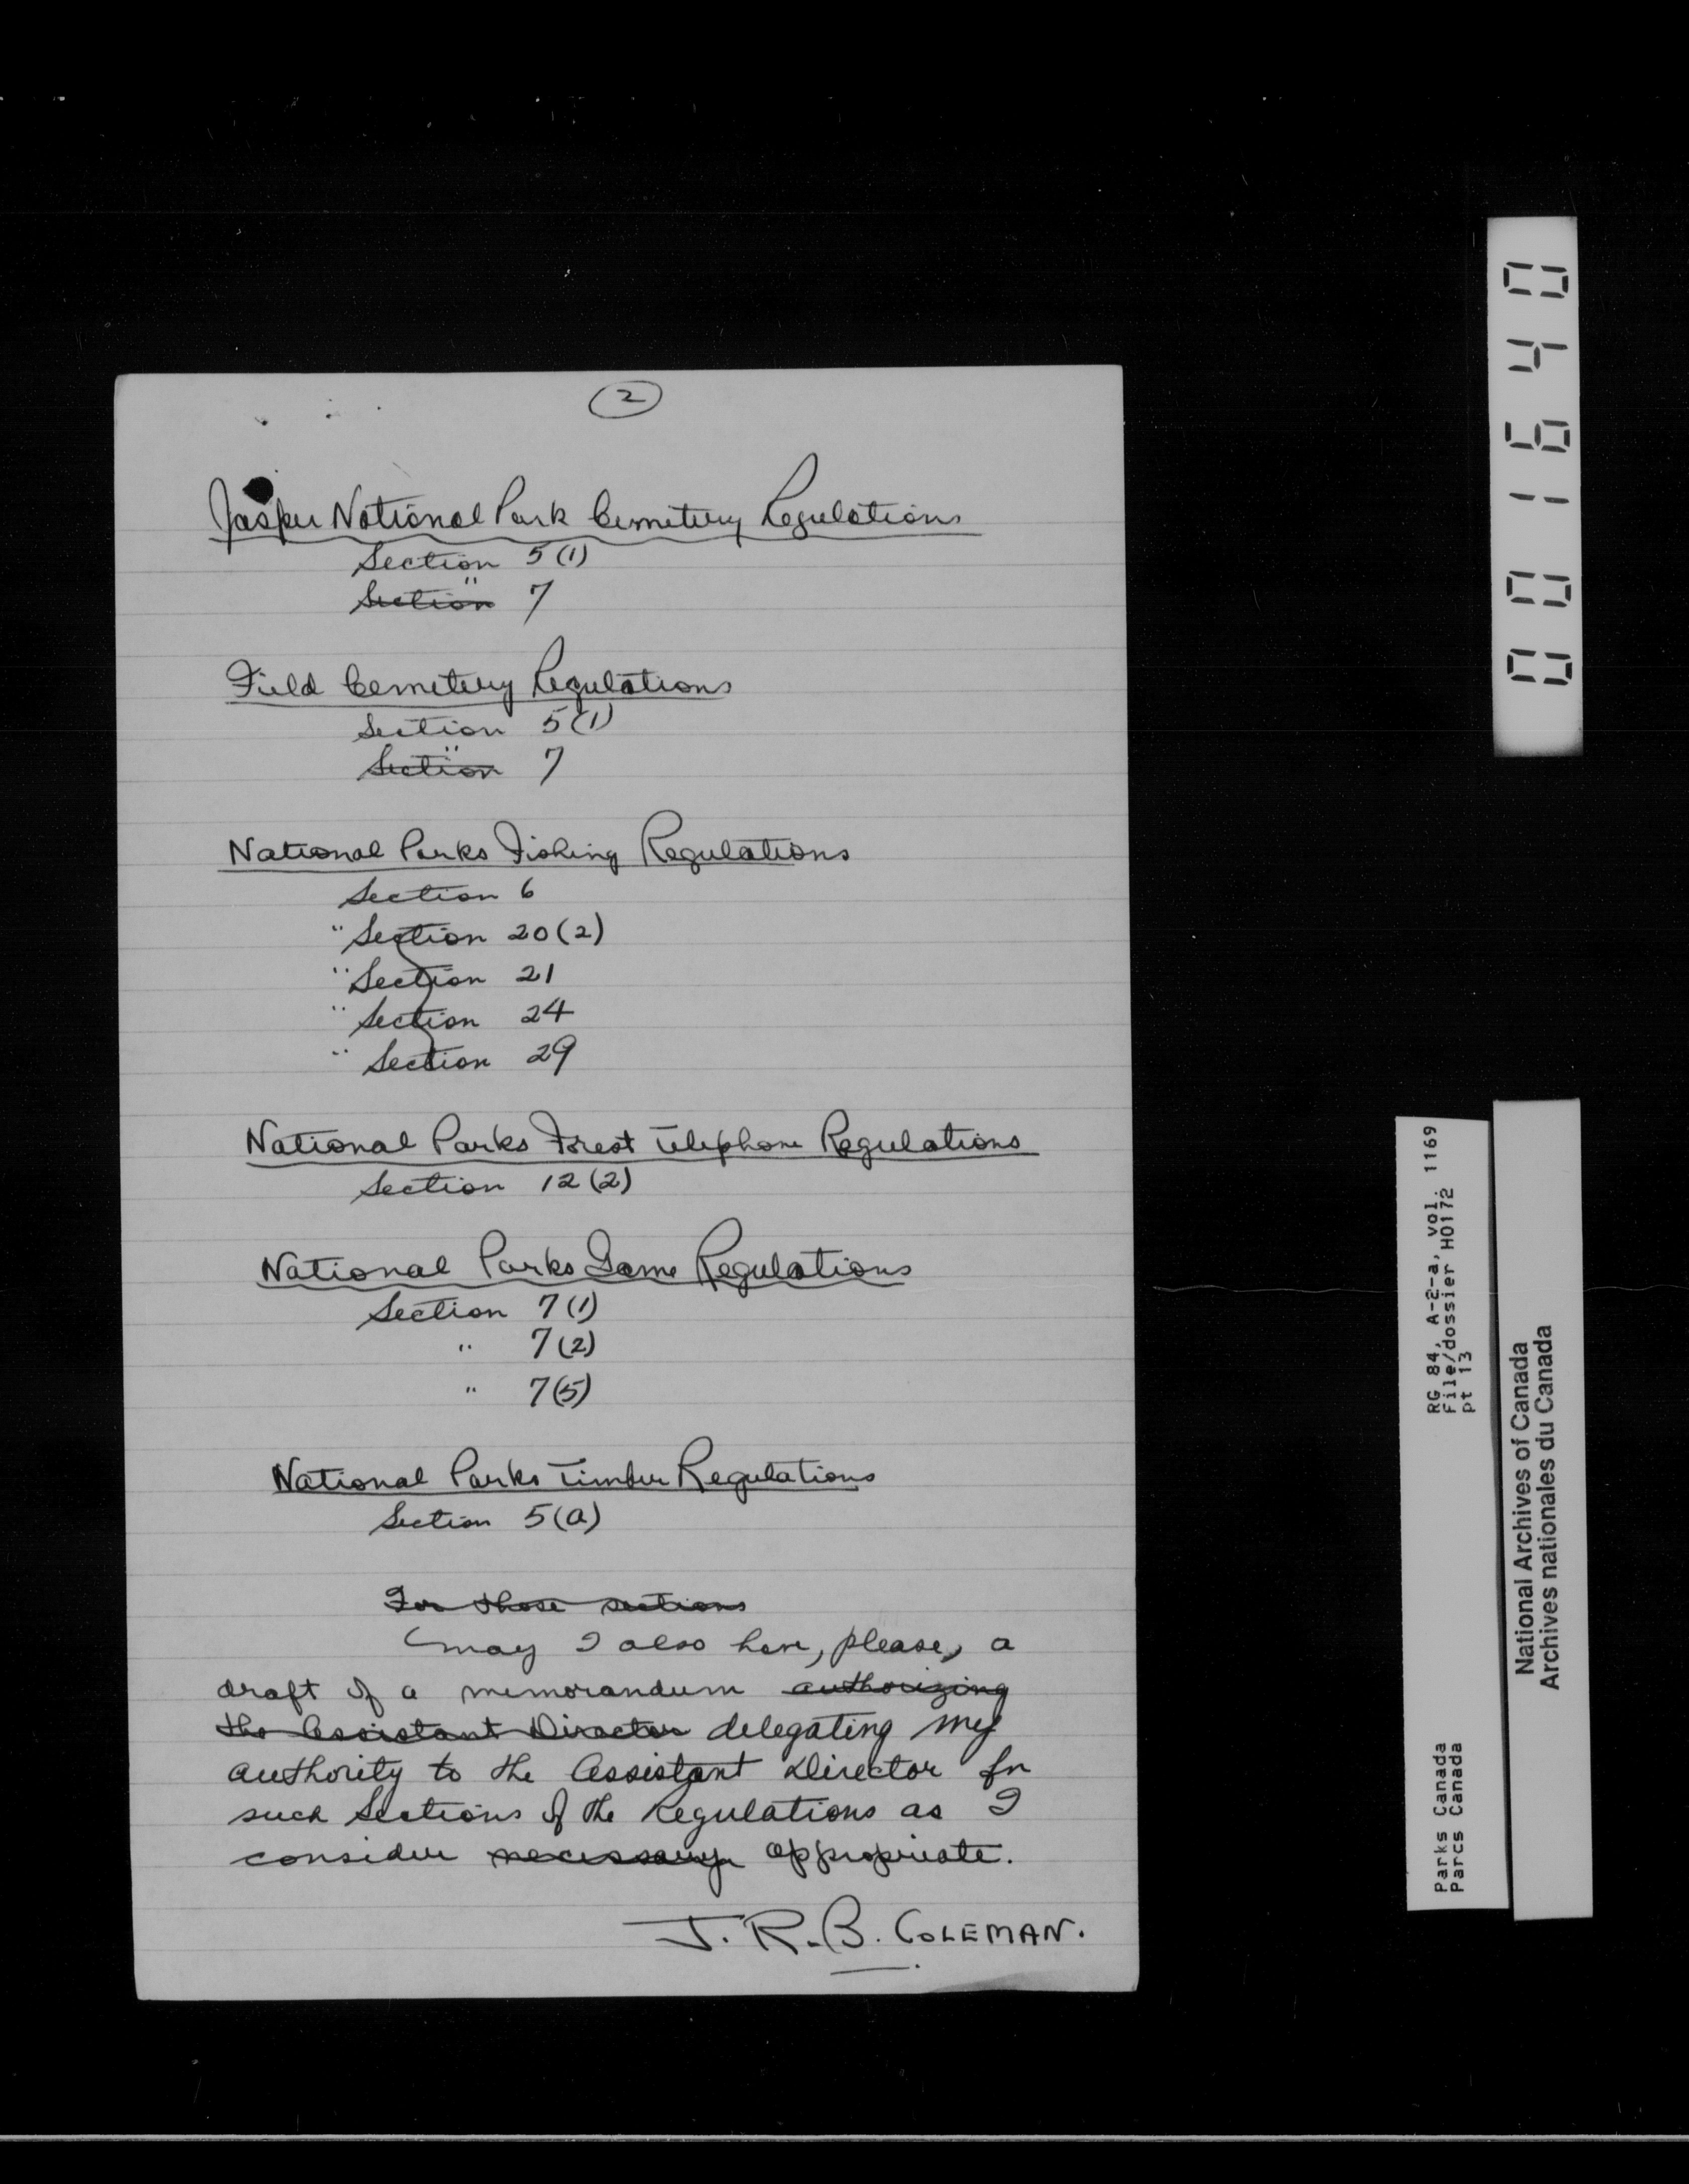 2
Jasper National Park Cemetery Regulations
Section 5(1)
Section " 7
Field Cemetery Regulations
Section 5(1)
Section " 7
National Parks Fishing Regulations
Section 6
" Section 20(2)
" Section 21
" Section 24
" Section 29
National Parks Forest Telephone Regulations
Section 12(2)
National Parks Game Regulations
Section 7(1)
" 7(2)
" 7(5)
National Parks Timber Regulations
Section 5(a)
For those sections
May I also have, please, a
draft of a memorandum authorizing
the Assistant Director delegating my
authority to the Assistant Director for
such Sections of the Regulations as I
consider necessary appropriate.
J. R. B. COLEMAN.
001640
RG 84, A-2-a, vol. 1169
File/dossier H0172
pt 13
Parks Canada
Parcs Canada
National Archives of Canada
Archives nationales du Canada